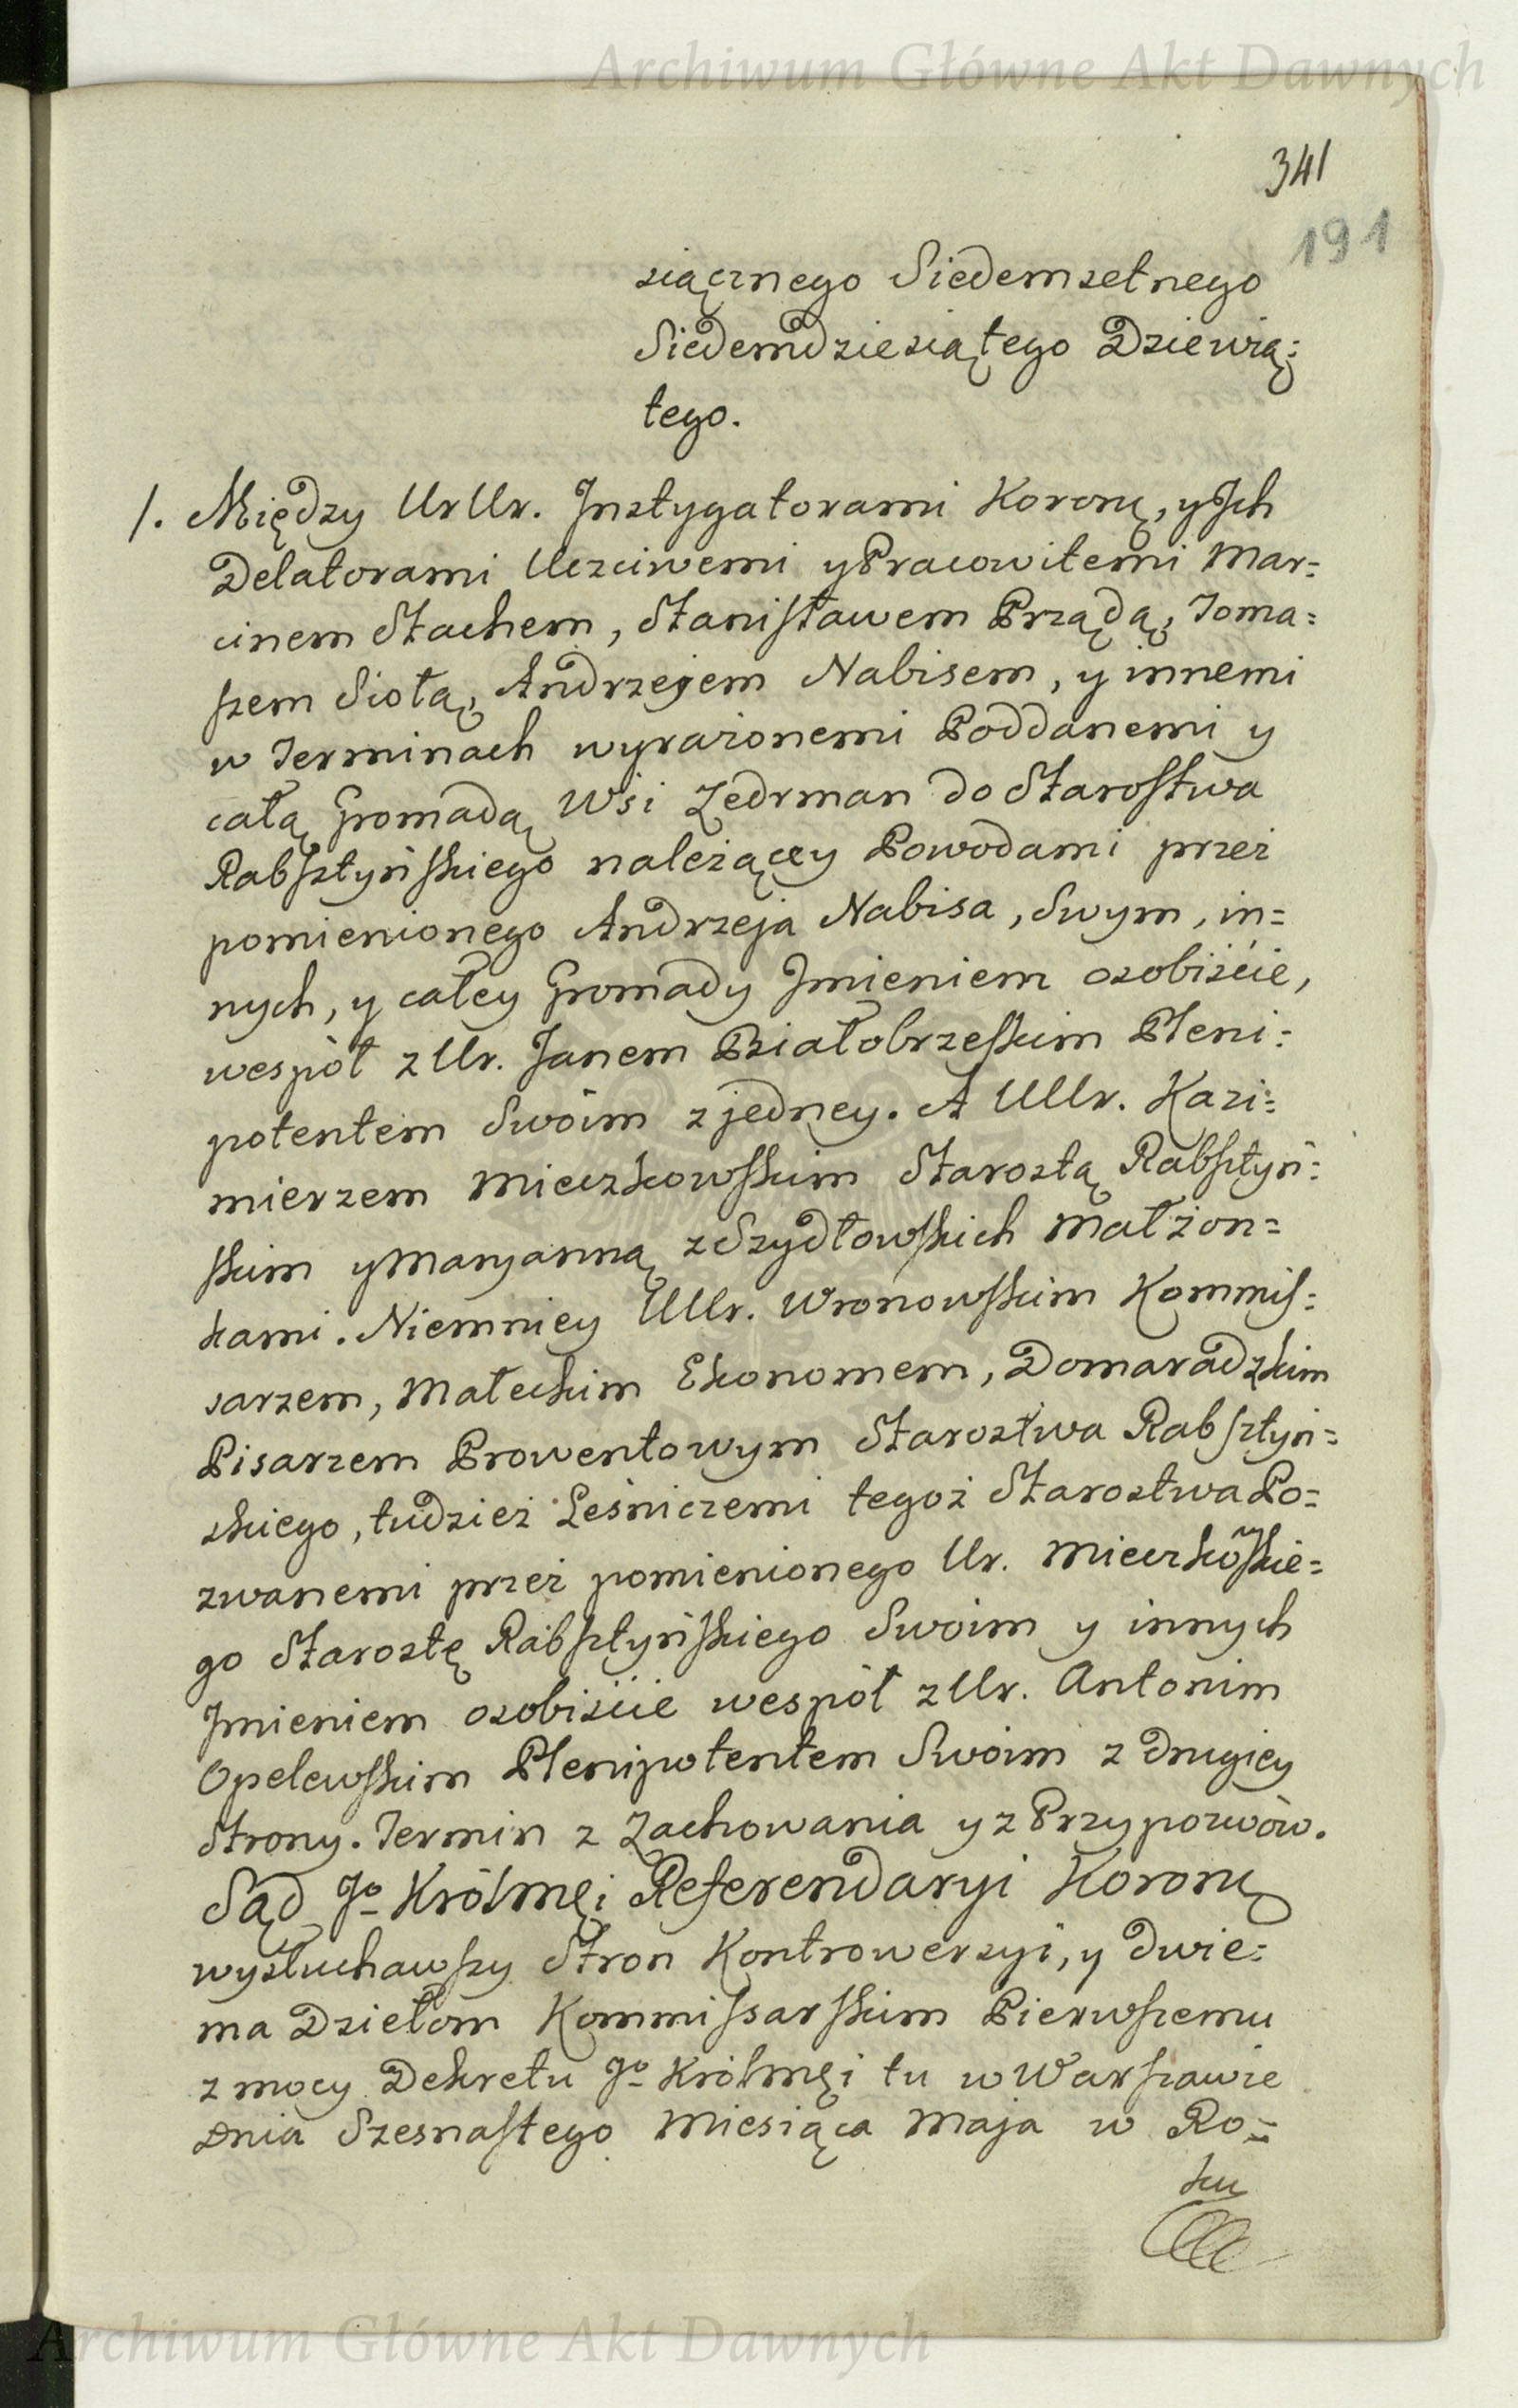 Archiwum Główne Akt Dawnych
341
191
siącznego Siedemsetnego
Siedemdziesiątego Dziewią=
tego.
1. Między UrUr. Instygatorami Koronę, y Ich
Delatorami Uczciwemi y Pracowitemi Mar=
cinem Stachem, Stanisławem Prządą, Toma=
szem Siotą, Andrzejem Nabisem, y innemi
w Terminach wyrażonemi Poddanemi y
całą Gromadą Wsi Zedrman do Starostwa
Rabsztyńskiego należącey Powodami przez
pomienionego Andrzeja Nabisa, Swym, in=
nych, y całey Gromady Jmieniem osobiście,
wespół z Ur. Janem Białobrzeskim Pleni=
potentem Swoim z jedney. A UUr. Kazi=
mierzem Mieczkowskim Starostą Rabsztyń=
skim y Maryanną z Szydłowskich Małżon=
kami. Niemniey UUr. Wronowskim Kommis=
sarzem, Małeckim Ekonomem, Domaradzkim
Pisarzem Prowentowym Starostwa Rabsztyń=
skiego, tudzież Leśniczemi tegoż Starostwa Po=
zwanemi przez pomienionego Ur. Mieczkoskie=
go Starostę Rabsztyńskiego Swoim y innych
Jmieniem osobiście wespół z Ur. Antonim
Opelewskim Plenipotentem Swoim z drugiey
Strony. Termin z Zachowania y z Przypozwów.
Sąd Jo Królmęi Referendaryi Koronę
wysłuchawszy Stron Kontrowersyi, y dwie=
ma Dziełom Kommissarskim Pierwszemu
z mocy Dekretu Jo Królmęi tu w Warszawie
Dnia Szesnastego Miesiąca Maja w Ro=
ku
Archiwum Główne Akt Dawnych